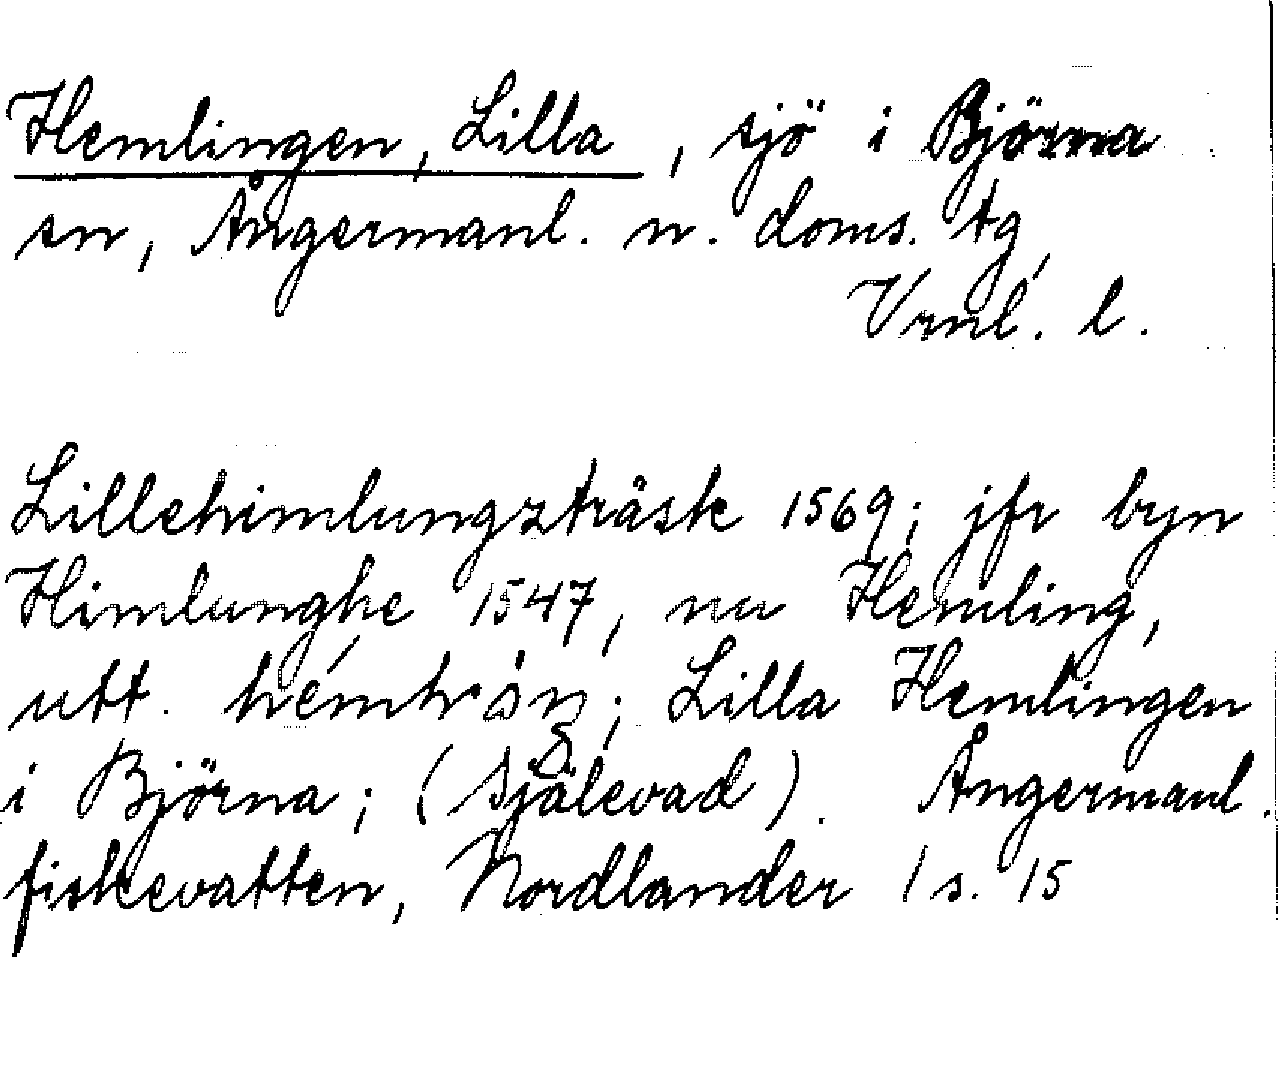 Hemlingen, Lilla, sjö i Björna
sn, Ångermanl. n. doms. tg,
Vrnl. l.
Lillehimlungzträsk 1569; jfr byn
Himlunghe 1547, nu Hemling,
utt.
; Lilla Hemlingen
i Björna; (Själevad). Ångermanl.
fiskevatten, Nordlander 1 s. 15